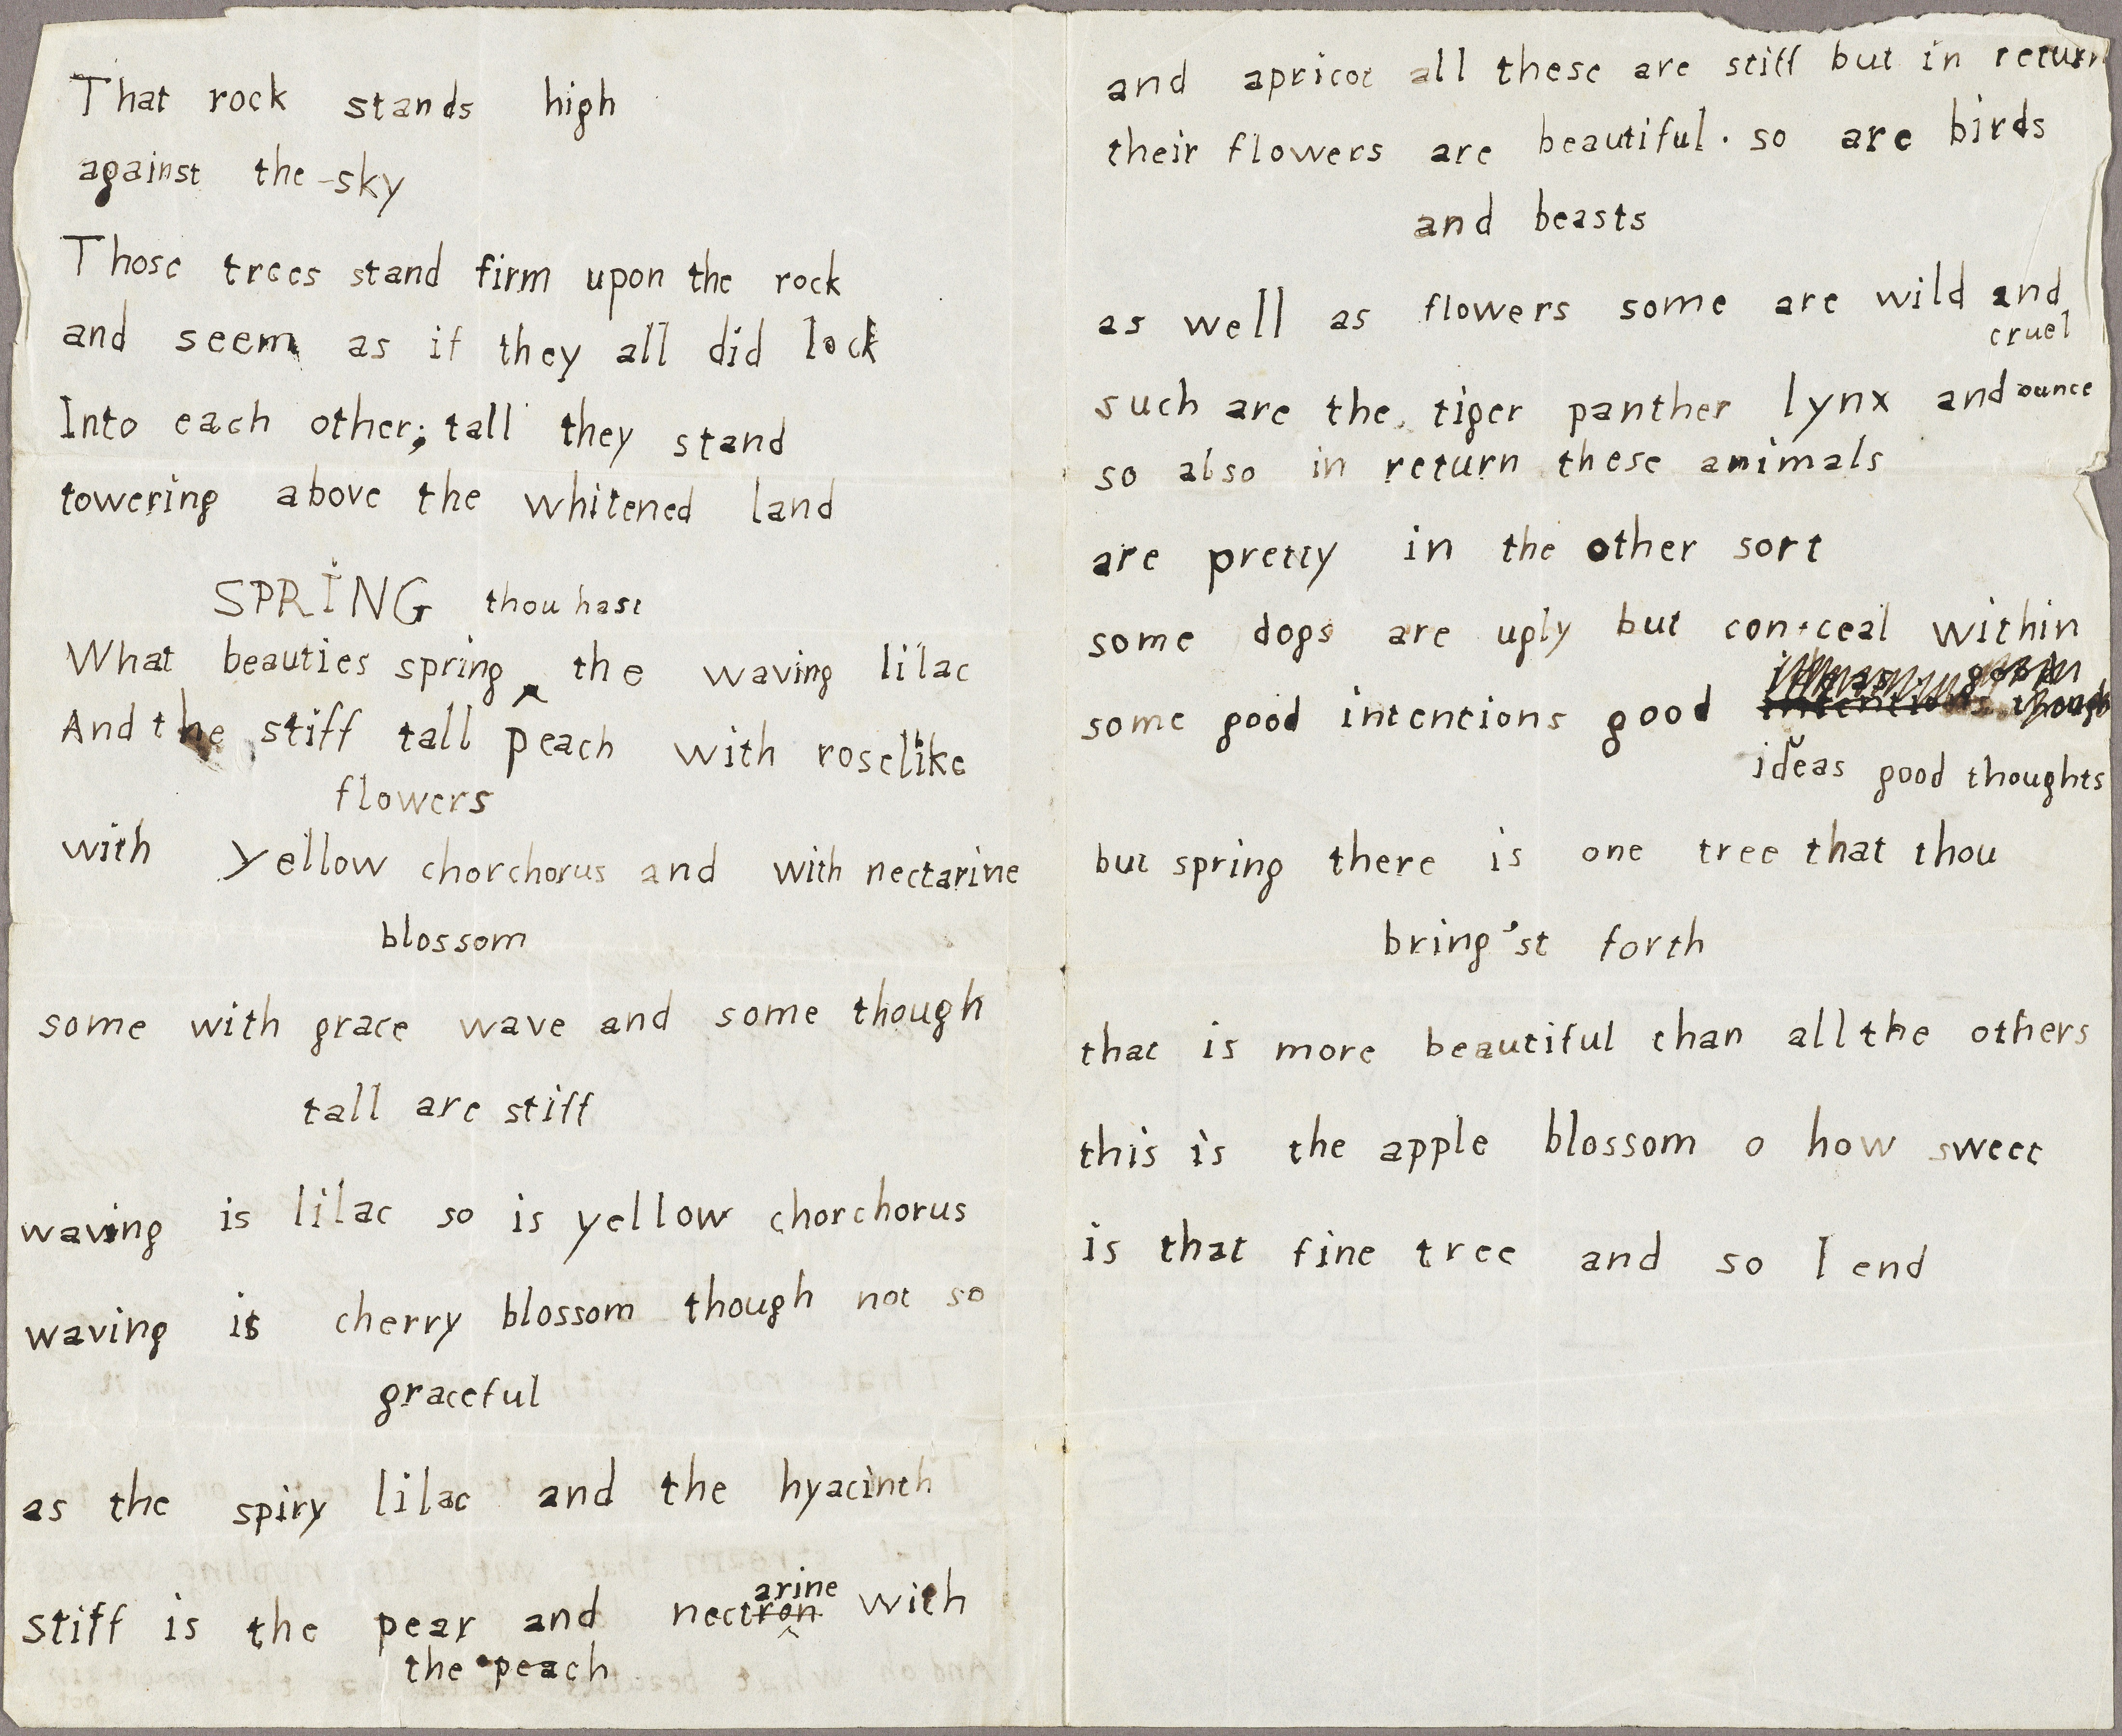 That rock stands high
against the sky
Those trees stand firm upon the rock
and seem as if they all did lock
Into each other; tall they stand
towering above the whitened land
SPRING thou hast
What beauties spring ‸ the waving lilac
And the stiff tall peach with roselike
flowers
with yellow chorchorus and with nectarine
blossom
some with grace wave and some though
tall are stiff
waving is lilac so is yellow chorchorus
waving is cherry blossom though not so
graceful
as the spiry lilac and the hyacinth
arine
stiff is the pear and nectron with
the peach
and apricot all these are stiff but in return
their flowers are beautiful. so are birds
and beasts
as well as flowers some are wild and
cruel
such are the tiger panther lynx and ounce
so also in return these animals
are pretty in the other sort
some dogs are ugly but conceal within
some good intentions good intentions
ideas good thoughts
but spring there is one tree that thou
bring'st forth
that is more beautiful than all the others
this is the apple blossom o how sweet
is that fine tree and so I end